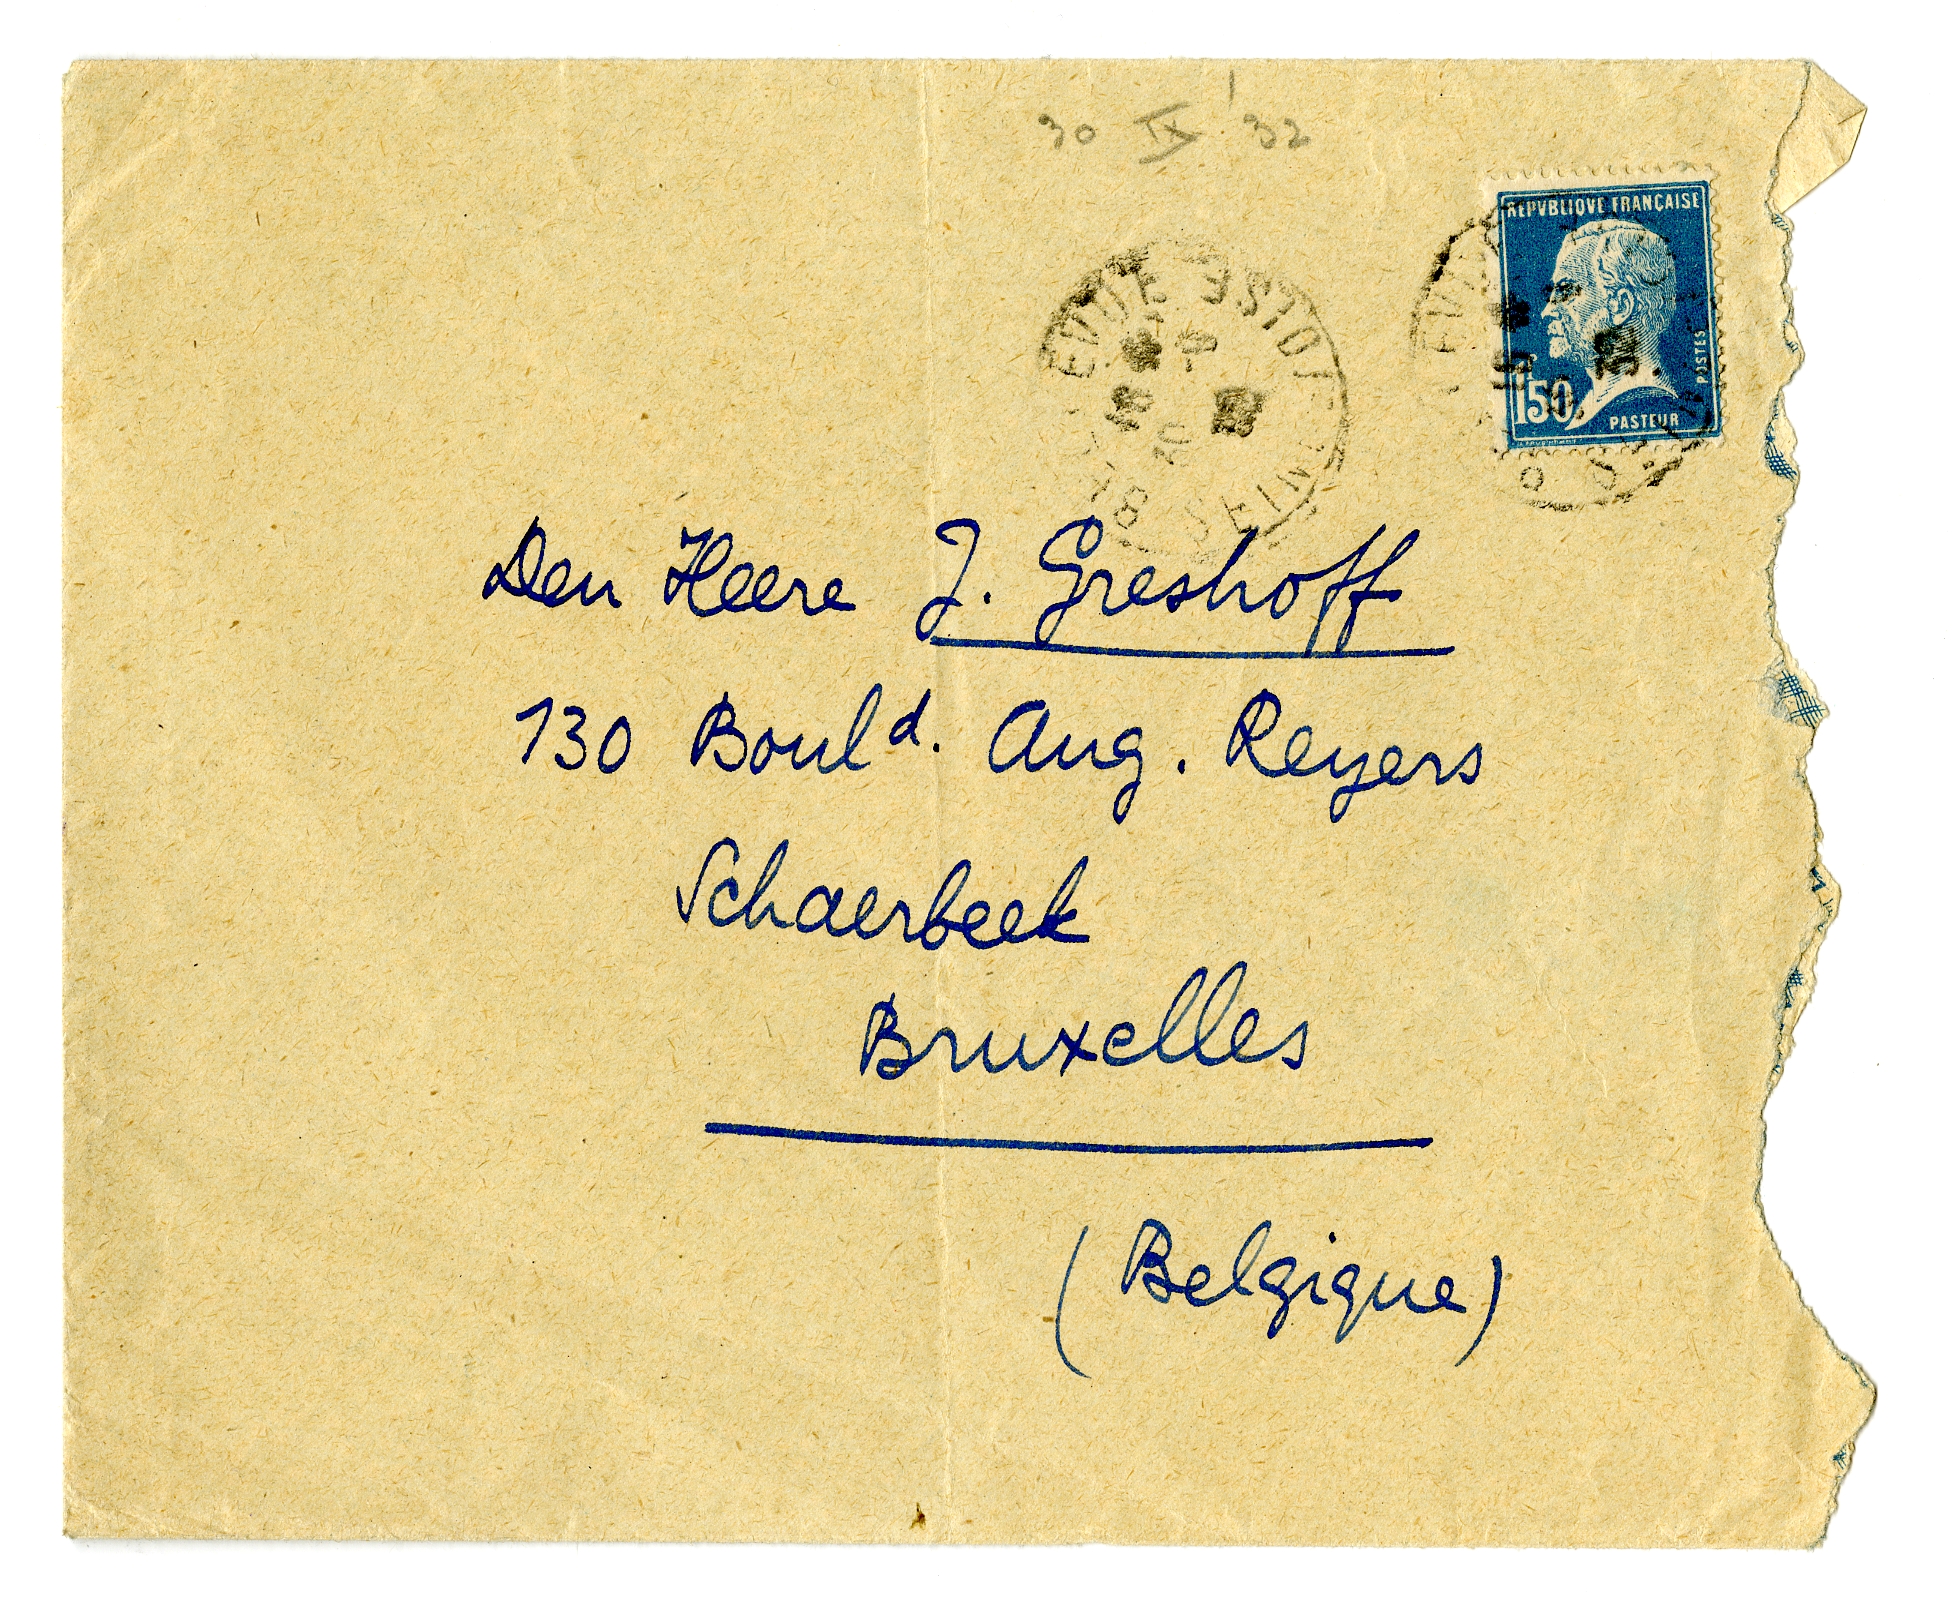 30 IX '32
REPVBLIQVE FRANÇAISE
POSTES
1F50
PASTEUR
SEINE
32
Den Heere J. Greshoff
130 Bould. Aug. Reyers
Schaerbeek
Bruxelles
(Belgique)